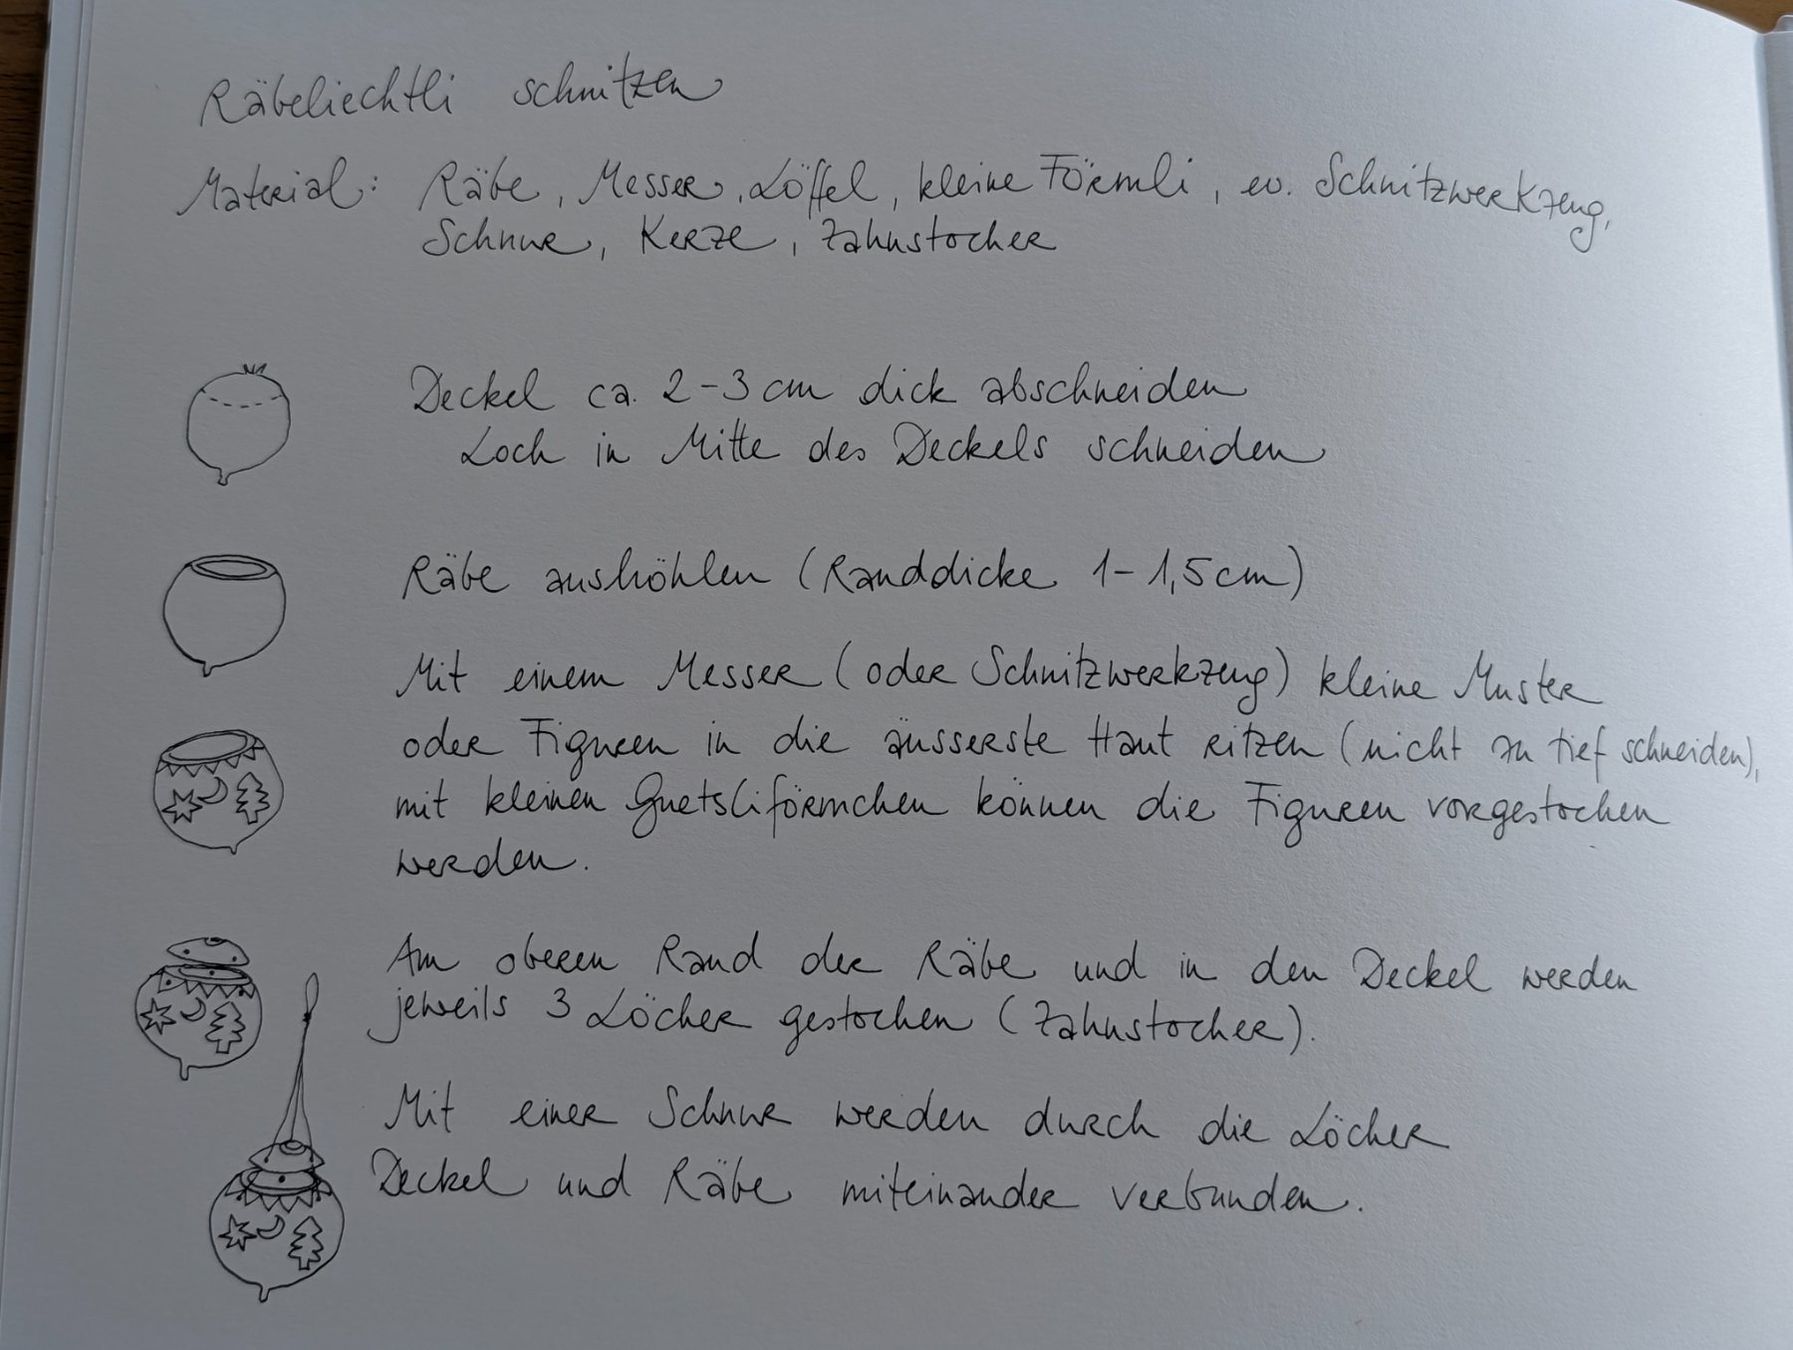 Räbeliechtli schnitzen
Material: Räbe, Messer, Löffel, kleine Förmli, ev. Schnitzwerkzeug,
Schnur, Kerze, Zahnstocher
Deckel ca. 2-3cm dick abschneiden
Loch in Mitte des Deckels schneiden
Räbe aushöhlen (Randdicke 1-1,5cm)
Mit einem Messer (oder Schnitzwerkzeug) kleine Muster
oder Figuren in die äusserste Haut ritzen (nicht zu tief schneiden),
mit kleinen Guetsliförmchen können die Figuren vorgestochen
werden.
Am oberen Rand der Räbe und in den Deckel werden
jeweils 3 Löcher gestochen (Zahnstocher).
Mit einer Schnur werden durch die Löcher
Deckel und Räbe miteinander verbunden.